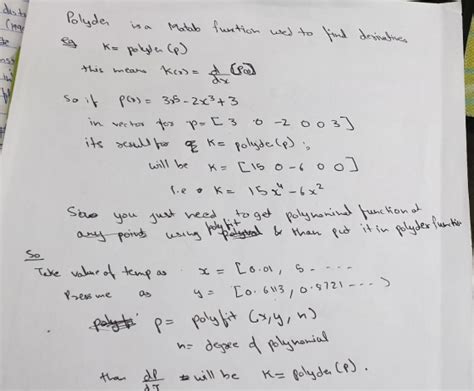 Polyder is a Matlab function used to find derivatives
Eg K= polyder (p)
this means K(x) = d/dx [P(x)]
So if P(x) = 3x5 - 2x3 + 3
in vector for p= [ 3 0 -2 0 0 3 ]
its result for K= polyder(p) ;
will be K = [15 0 -6 0 0]
i.e K = 15x4 - 6x2
you just need to get polynomial function at
any point using polyfit & than put it in polyder function
So
Take value of temp as x = [0.01, 5 - - - -
Pressure as y = [0.6113, 0.8721 - - - )
p = polyfit (x, y, n)
n= degree of polynomial
than dP/dT will be K= polyder(p).